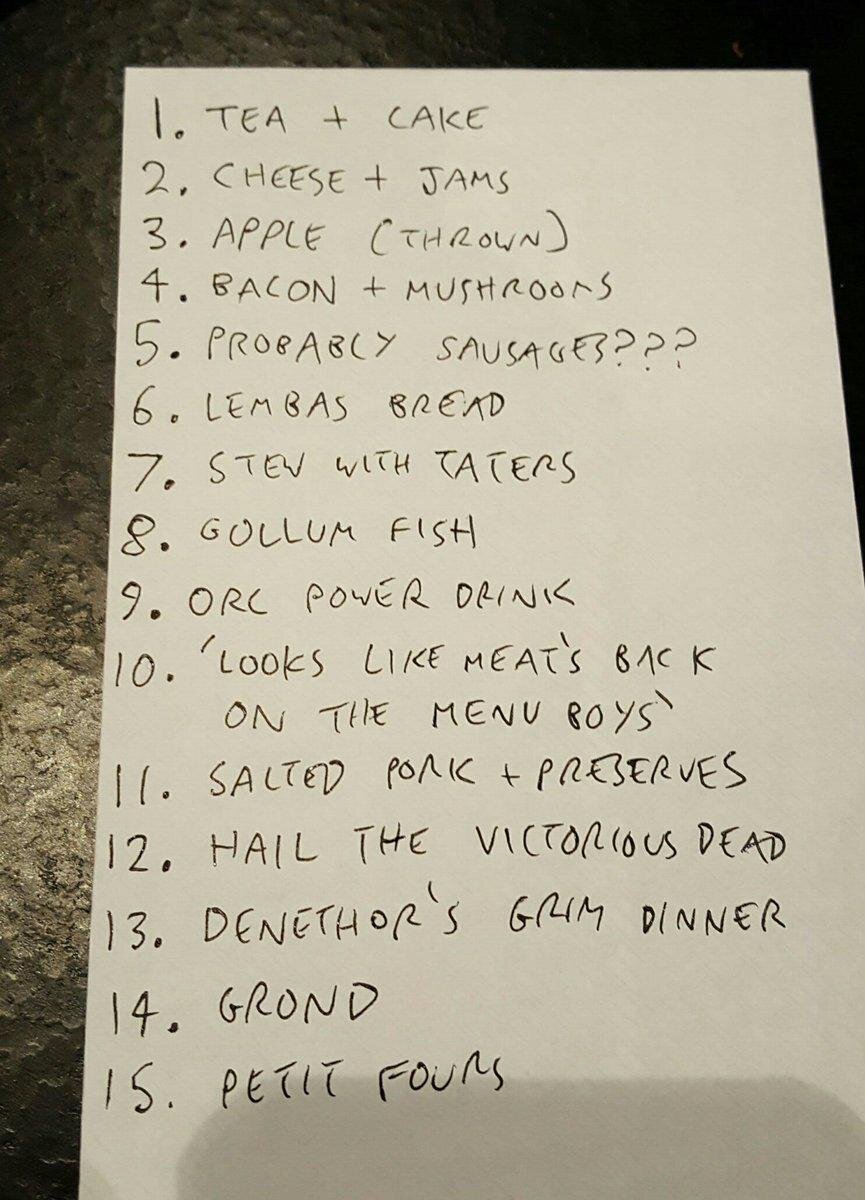 1. TEA + CAKE
2. CHEESE + JAMS
3. APPLE (THROWN)
4. BACON + MUSHROOMS
5. PROBABLY SAUSAGES???
6. LEMBAS BREAD
7. STEW WITH TATERS
8. GOLLUM FISH
9. ORC POWER DRINK
10. 'LOOKS LIKE MEAT'S BACK
ON THE MENU BOYS'
11. SALTED PORK + PRESERVES
12. HAIL THE VICTORIOUS DEAD
13. DENETHOR'S GRIM DINNER
14. GROND
15. PETIT FOURS